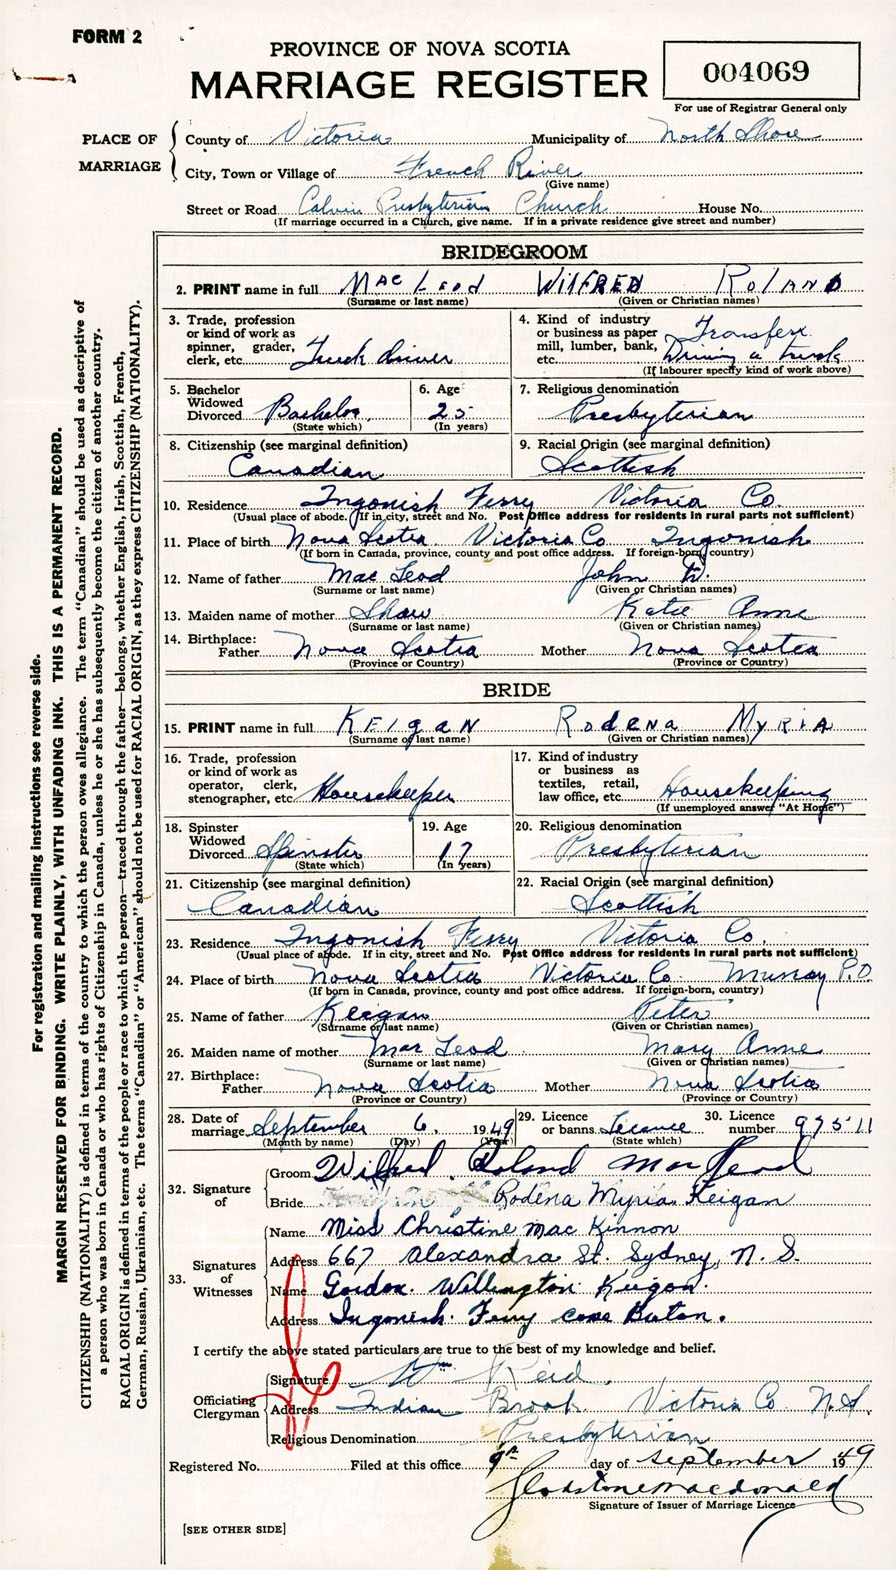 FORM 2
PROVINCE OF NOVA SCOTIA
MARRIAGE REGISTER
004069
For use of Registrar General only
PLACE OF MARRIAGE
County of Victoria Municipality of North Shore
City, Town or Village of French River
(Give name)
Street or Road Calvin Presbyterian Church House No.
(If marriage occurred in a Church, give name. If in a private residence give street and number)
BRIDEGROOM
2. PRINT name in full MacLeod Wilfred Roland
(Surname or last name) (Given or Christian names)
3. Trade, profession or kind of work as spinner, grader, clerk, etc. Truck driver
4. Kind of industry or business as paper mill, lumber, bank, etc. Transfer Driving a truck
(If labourer specify kind of work above)
5. Bachelor Widowed Divorced Bachelor
(State which)
6. Age 25
(In years)
7. Religious denomination
Presbyterian
8. Citizenship (see marginal definition)
Canadian
9. Racial Origin (see marginal definition)
Scottish
10. Residence Ingonish Ferry Victoria Co.
(Usual place of abode. If in city, street and No. Post Office address for residents in rural parts not sufficient)
11. Place of birth Nova Scotia Victoria Co Ingonish
(If born in Canada, province, county and post office address. If foreign-born, country)
12. Name of father MacLeod John
(Surname or last name) (Given or Christian names)
13. Maiden name of mother Shaw Katie Anne
(Surname or last name) (Given or Christian names)
14. Birthplace:
Father Nova Scotia Mother Nova Scotia
(Province or Country) (Province or Country)
BRIDE
15. PRINT name in full Keigan Rodena Myria
(Surname or last name) (Given or Christian names)
16. Trade, profession or kind of work as operator, clerk, stenographer, etc. Housekeeper
17. Kind of industry or business as textiles, retail, law office, etc. Housekeeping
(If unemployed answer "At Home")
18. Spinster Widowed Divorced Spinster
(State which)
19. Age 17
(In years)
20. Religious denomination
Presbyterian
21. Citizenship (see marginal definition)
Canadian
22. Racial Origin (see marginal definition)
Scottish
23. Residence Ingonish Ferry Victoria Co.
(Usual place of abode. If in city, street and No. Post Office address for residents in rural parts not sufficient)
24. Place of birth Nova Scotia Victoria Co. Murray P.O.
(If born in Canada, province, county and post office address. If foreign-born, country)
25. Name of father Keigan Peter
(Surname or last name) (Given or Christian names)
26. Maiden name of mother MacLeod Mary Anne
(Surname or last name) (Given or Christian names)
27. Birthplace:
Father Nova Scotia Mother Nova Scotia
(Province or Country) (Province or Country)
28. Date of marriage September 6, 1949
(Month by name) (Day) (Year)
29. Licence or banns Licence
(State which)
30. Licence number 97511
32. Signature of
Groom Wilfred Roland MacLeod
Bride Rodena Myria Keigan
33. Signatures of Witnesses
Name Miss Christine MacKinnon
Address 667 Alexandra St. Sydney, N. S.
Name Gordon Wellington Keigan.
Address Ingonish Ferry Cape Breton.
I certify the above stated particulars are true to the best of my knowledge and belief.
Officiating Clergyman
Signature Wm Reid.
Address Indian Brook Victoria Co. N.S.
Religious Denomination Presbyterian
Registered No. Filed at this office 9th day of September 1949
Gladstone Macdonald
Signature of Issuer of Marriage Licence
[SEE OTHER SIDE]
For registration and mailing instructions see reverse side.
MARGIN RESERVED FOR BINDING. WRITE PLAINLY, WITH UNFADING INK. THIS IS A PERMANENT RECORD.
CITIZENSHIP (NATIONALITY) is defined in terms of the country to which the person owes allegiance. The term "Canadian" should be used as descriptive of
a person who was born in Canada or who has rights of Citizenship in Canada, unless he or she has subsequently become the citizen of another country.
RACIAL ORIGIN is defined in terms of the people or race to which the person—traced through the father—belongs, whether English, Irish, Scottish, French,
German, Russian, Ukrainian, etc. The terms "Canadian" or "American" should not be used for RACIAL ORIGIN, as they express CITIZENSHIP (NATIONALITY).